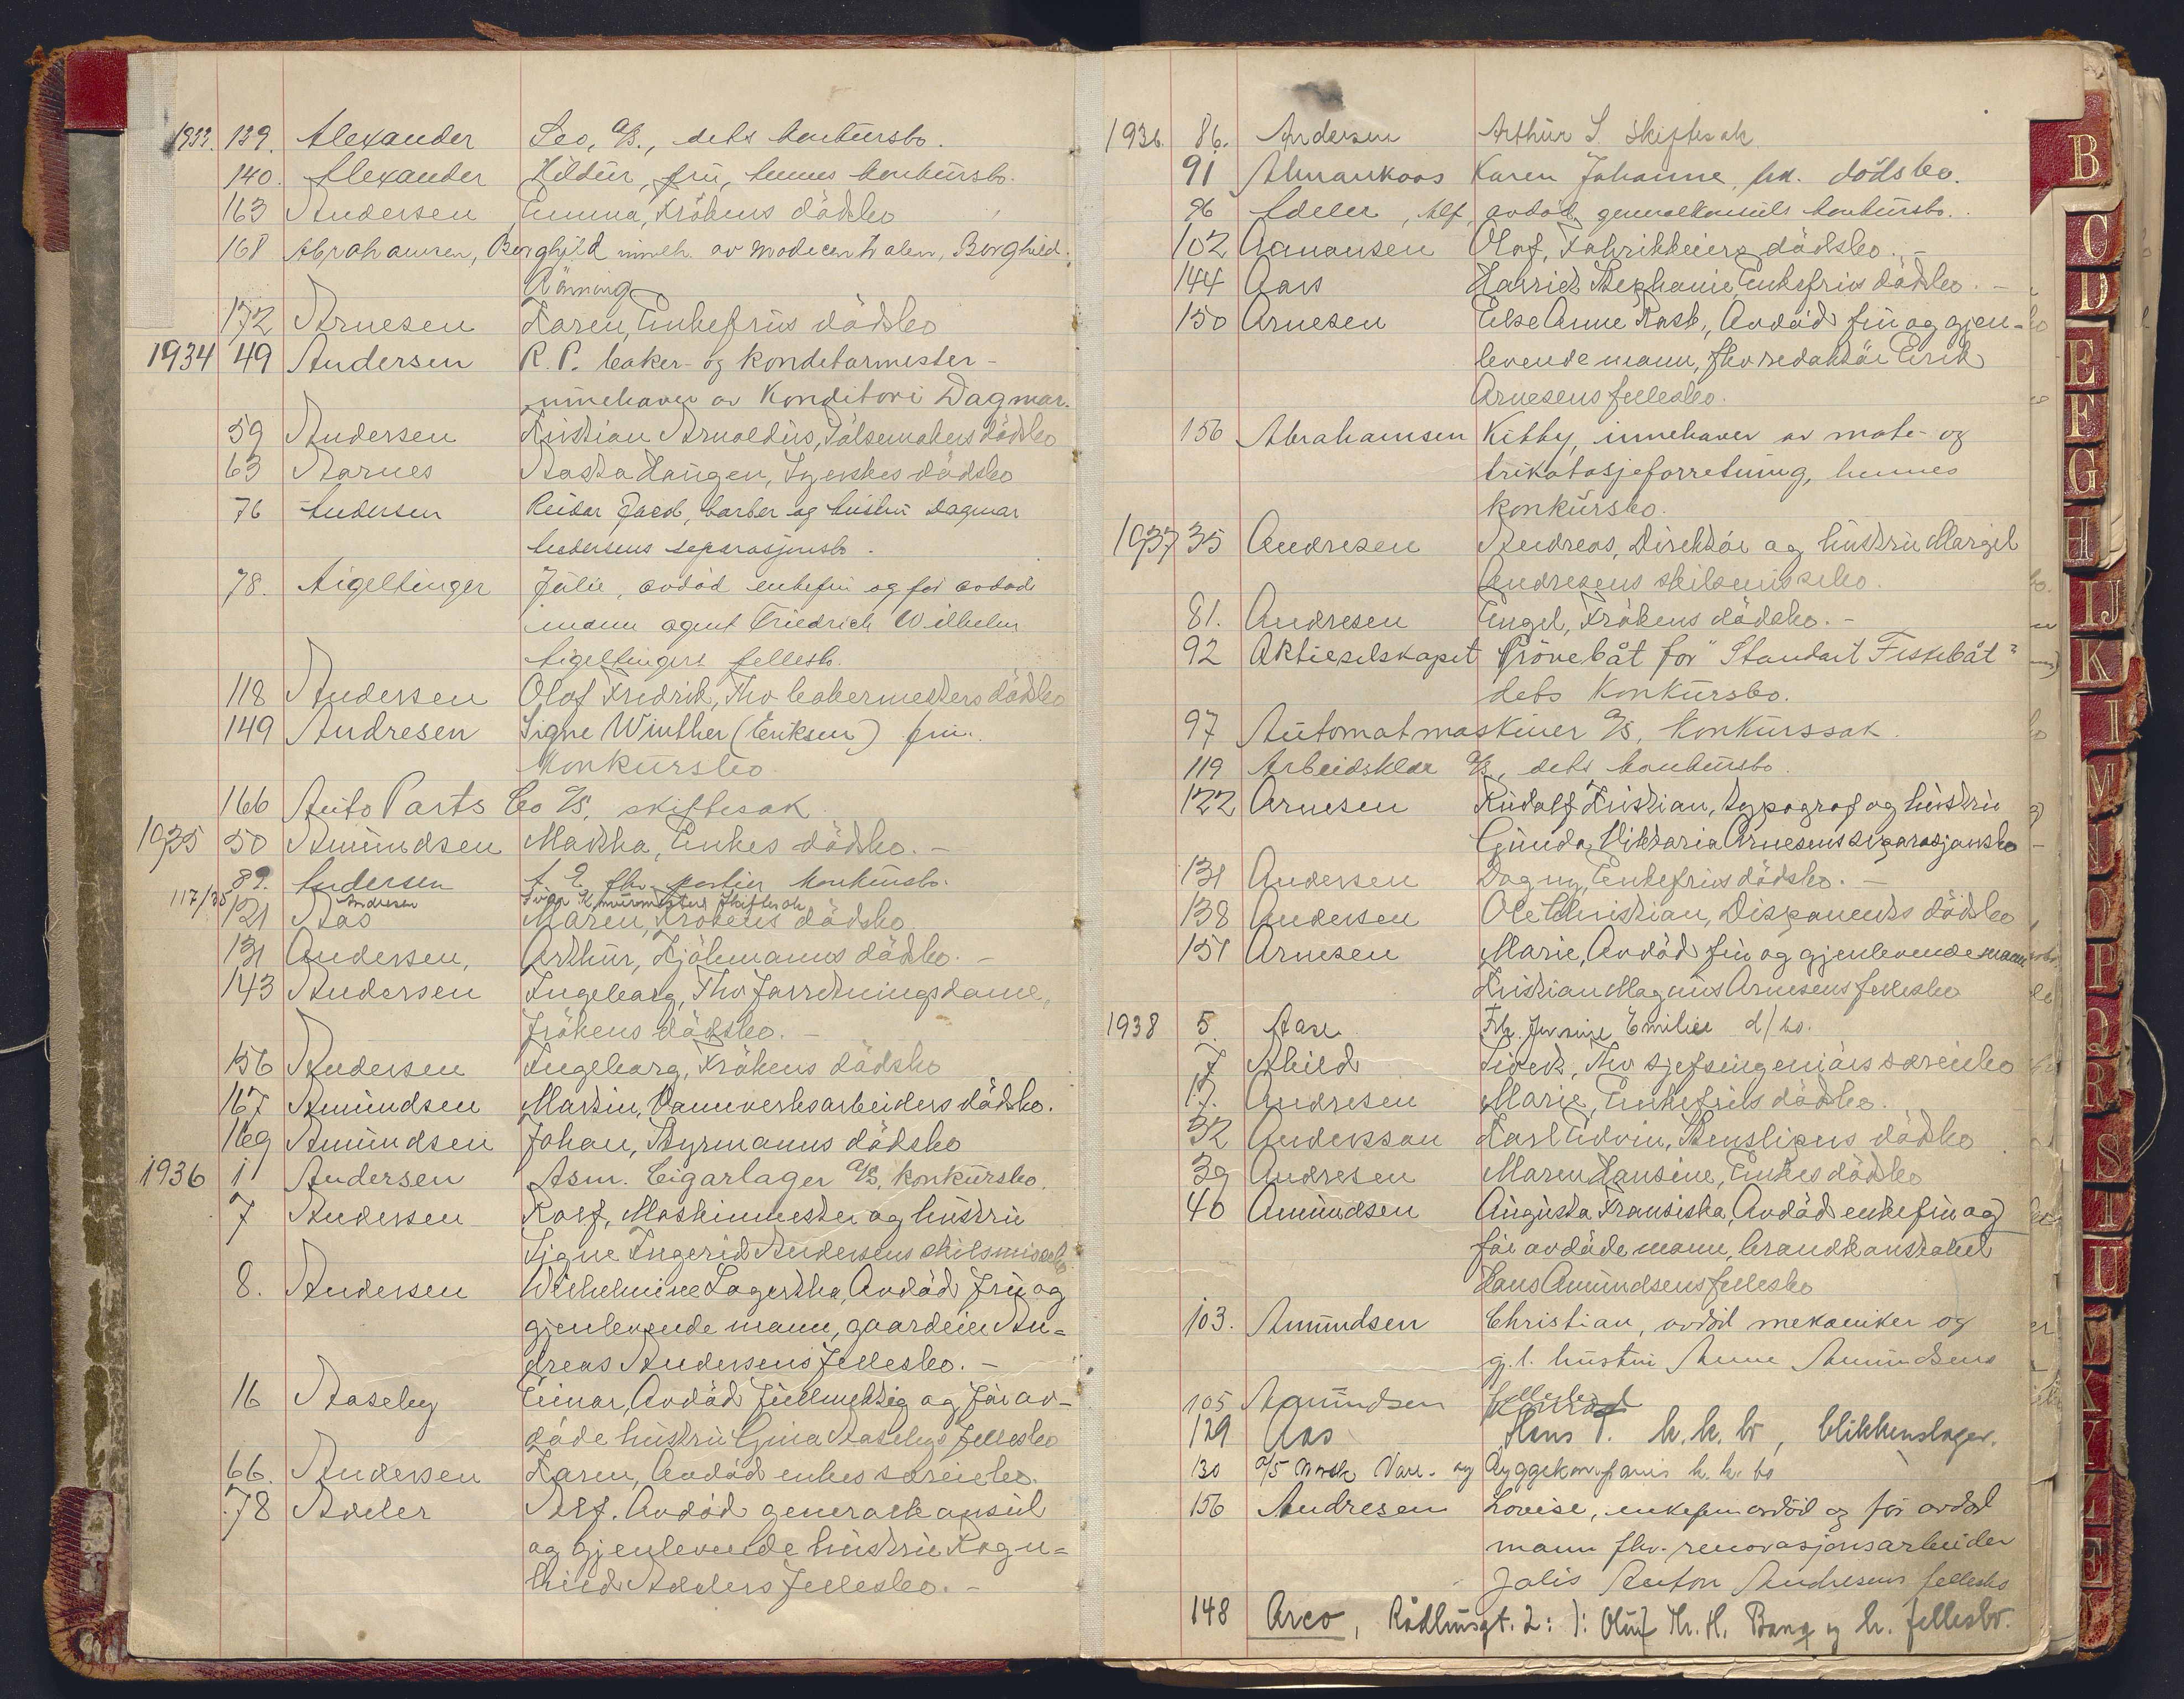 1933. 139. Alexander Leo, A/S., dets konkursbo.
140. Alexander Hildur, fru, hennes konkursbo.
163 Andersen Emma, Frökens dödsbo
168 Abrahamsen, Borghild inneh. av Motecentralen, Borghild.
172 Arnesen Karen, Enkefrus dödsbo
1934 49 Andersen R. P. baker- og konditormester-
innehaver av Konditori Dagmar.
59 Andersen Kristian Arnoldus, Pölsemakers dödsbo
63 Aarnes Aasta Haugen, Syerskes dödsbo
76 Andersen Reidar Jacob, barber og hustru Dagmar
Andersens separasjonsbo.
78. Aigeltinger Julie, avdöd enkefru og för avdöd
mann agent Friedrich Wilhelm
Aigeltingers fellesbo.
118 Andersen Olaf Fredrik, Fhv bakermesters dödsbo
149 Andresen Signe Winther (Eriksen) fru.
Konkursbo
166 Auto Parts Co A/S, skiftesak
1935 50 Amundsen Martha, Enkes dödsbo. -
89. Andersen A. E. fhv. portier, konkursbo.
117/35 Andresen Ivar K, murmester Skiftesak
121 Aas Maren, Frökens dödsbo
131 Andersen, Arthur, Sjömanns dödsbo. -
143 Andersen Ingeborg, Fhv Forretningsdame,
frökens dödsbo. -
156 Andersen Ingeborg, Frökens dödsbo
167 Amundsen Martin, Vannverksarbeiders dödsbo.
169 Amundsen Johan, Styrmanns dödsbo
1936 1 Andersen Asm. Cigarlager A/S, konkursbo.
7 Andersen Rolf, Maskinmester og hustru
Signe Ingerid Andersens skilsmissebo
8. Andersen Wilhelmine Lagertha, Avdöd fru og
gjenlevende mann, gaardeier An=
dreas Andersens fellesbo. -
16 Aaseby Einar, Avdöd fullmektig og för av-
döde hustru Gina Aasebys fellesbo
66. Andersen Karen, Avdöd enkes særeiebo.
78 Adeler Alf. Avdöd generalkonsul
og gjenlevende hustru Ragn=
hild Adelers fellesbo. -
1936. 86. Andersen Arthur S. Skiftesak
91 Almankaas Karen Johanne, frk. dödsbo.
96 Adeler, Alf, avdöd generalkonsuls konkursbo.
102 Aamansen Olaf, Fabrikkeiers dödsbo. -
144 Aars Harriet Stephanie, Enkefrus dödsbo. -
150 Arnesen Else Anne Rask, Avdöd fru og gjen-
levende mann, fhv redaktör Eirik
Arnesens fellesbo.
156 Abrahamsen Kitty, innehaver av mote- og
trikotasjeforretning, hennes
konkursbo.
1937 35 Andresen Andreas, Direktör og hustru Margit
Andresens skilsmissebo.
81. Andresen Engel, Frökens dödsbo. -
92 Aktieselskapet Prövebåt for "Standart Fiskebåt"
dets Konkursbo.
97 Automatmaskiner A/S, Konkurssak.
119 Arbeidsklær A/S, dets konkursbo
122 Arnesen Rudolf Kristian, typograf og hustru
Gunda Viktoria Arnesens separasjonsbo
131 Andersen Dagny, Enkefrus dödsbo. -
138 Andersen Ole Christian, Disponents dödsbo
151 Arnesen Marie, Avdöd fru og gjenlevende mann
Kristian Magnus Arnesens fellesbo
1938 5. Aase Frk. Emilie d/bo.
7 Abild Sivert, Fhv sjefsingeniörs særeiebo
17. Andresen Marie, Enkefrus dödsbo.
32 Andersson Karl Edvin, Stenslipers dödsbo
39 Andresen Maren Hansine, Enkes dödsbo
40 Amundsen Augusta Fransiska, Avdöd enkefru og
för avdöde mann, brandkonstabel
Hans Amundsens fellesbo
103. Amundsen Christian, avdöd mekaniker og
g.l. hustru Anne Amundsens
fellesbo
105 Aamundsen Konrad
129 Aas Hans P. k.k.bo, blikkenslager.
130 A/S Norsk Vare- og Byggekompani k.k.bo
156 Andresen Lovise, enkefru avdöd og för avdöd
mann fhv. renovasjonsarbeider
Julis Anton Andresens fellesbo
148 Arco, Rådhusgt. 2: ): Oluf Th. H. Bang og h. fellesbo.
B
C
D
E
F
G
H
IJ
K
L
M
N
O
P
Q
R
S
T
U
V
X
Y
Z
Æ
Ø